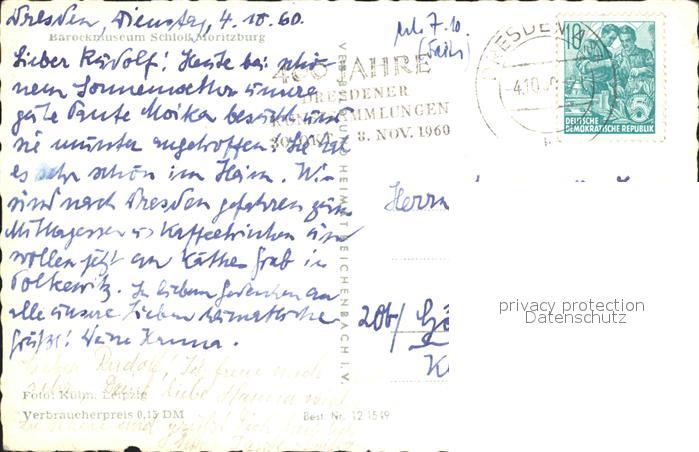 Dresden, Dienstag, 4.10.60.
Barockmuseum Schloß Moritzburg
Lieber Rudolf! Heute bei schö-
nem Sonnenwetter unsere
gute Tante Moika besucht und
sie munter angetroffen! Sie hat
es sehr schön im Heim. Wir
sind nach Dresden gefahren zum
Mittagessen u. Kaffeetrinken und
wollen jetzt an Käthes Grab in
Tolkewitz. In liebem Gedenken an
alle unsere Lieben
Grüße! Deine Hanna.
Lieber Rudolf! Ich freue mich
sehr. Liebe Hanna
und grüßt Dich
Foto: Kühn, Leipzig
Verbraucherpreis 0,15 DM
Best. Nr. 12 1549
VERLAG HEIMAT REICHENBACH I. V.
7.10.
400 JAHRE
DRESDENER
KUNSTSAMMLUNGEN
8. NOV. 1960
DRESDEN
-4.10.60
10
5
DEUTSCHE
DEMOKRATISCHE REPUBLIK
Herrn
20b/
privacy protection
Datenschutz